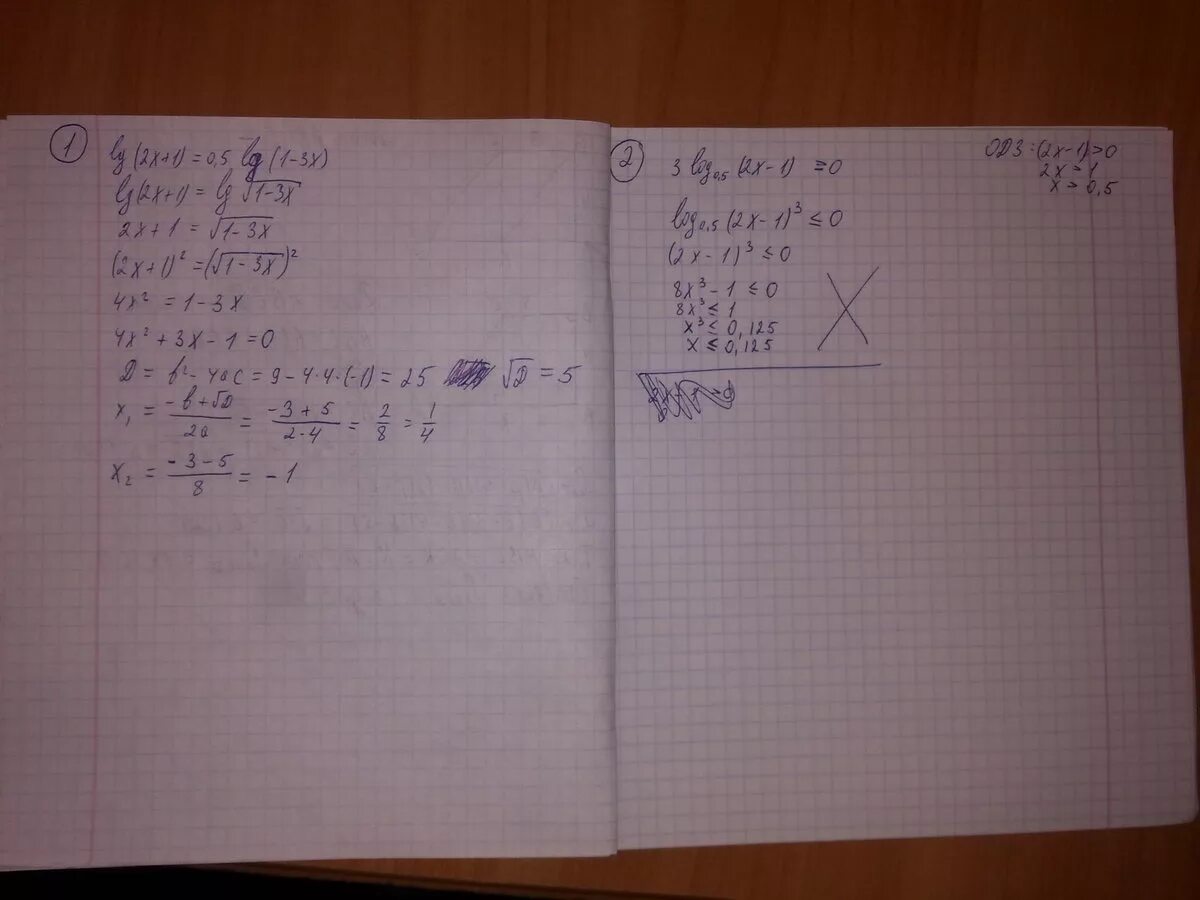 1
lg (2x+1) = 0,5 lg (1-3x)
lg(2x+1) = lg √(1-3x)
2x+1 = √(1-3x)
(2x+1)² = (√(1-3x))²
4x² = 1-3x
4x² + 3x - 1 = 0
D = b² - 4ac = 9 - 4·4·(-1) = 25 √D = 5
x₁ = (-b+√D)/2a = (-3+5)/2·4 = 2/8 = 1/4
x₂ = (-3-5)/8 = -1
2
3 log₀,₅ (2x-1) = 0
log₀,₅ (2x-1)³ ≤ 0
(2x-1)³ ≤ 0
8x³ - 1 ≤ 0
8x³ ≤ 1
x³ ≤ 0,125
x ≤ 0,125
ОДЗ: (2x-1)>0
2x > 1
x > 0,5